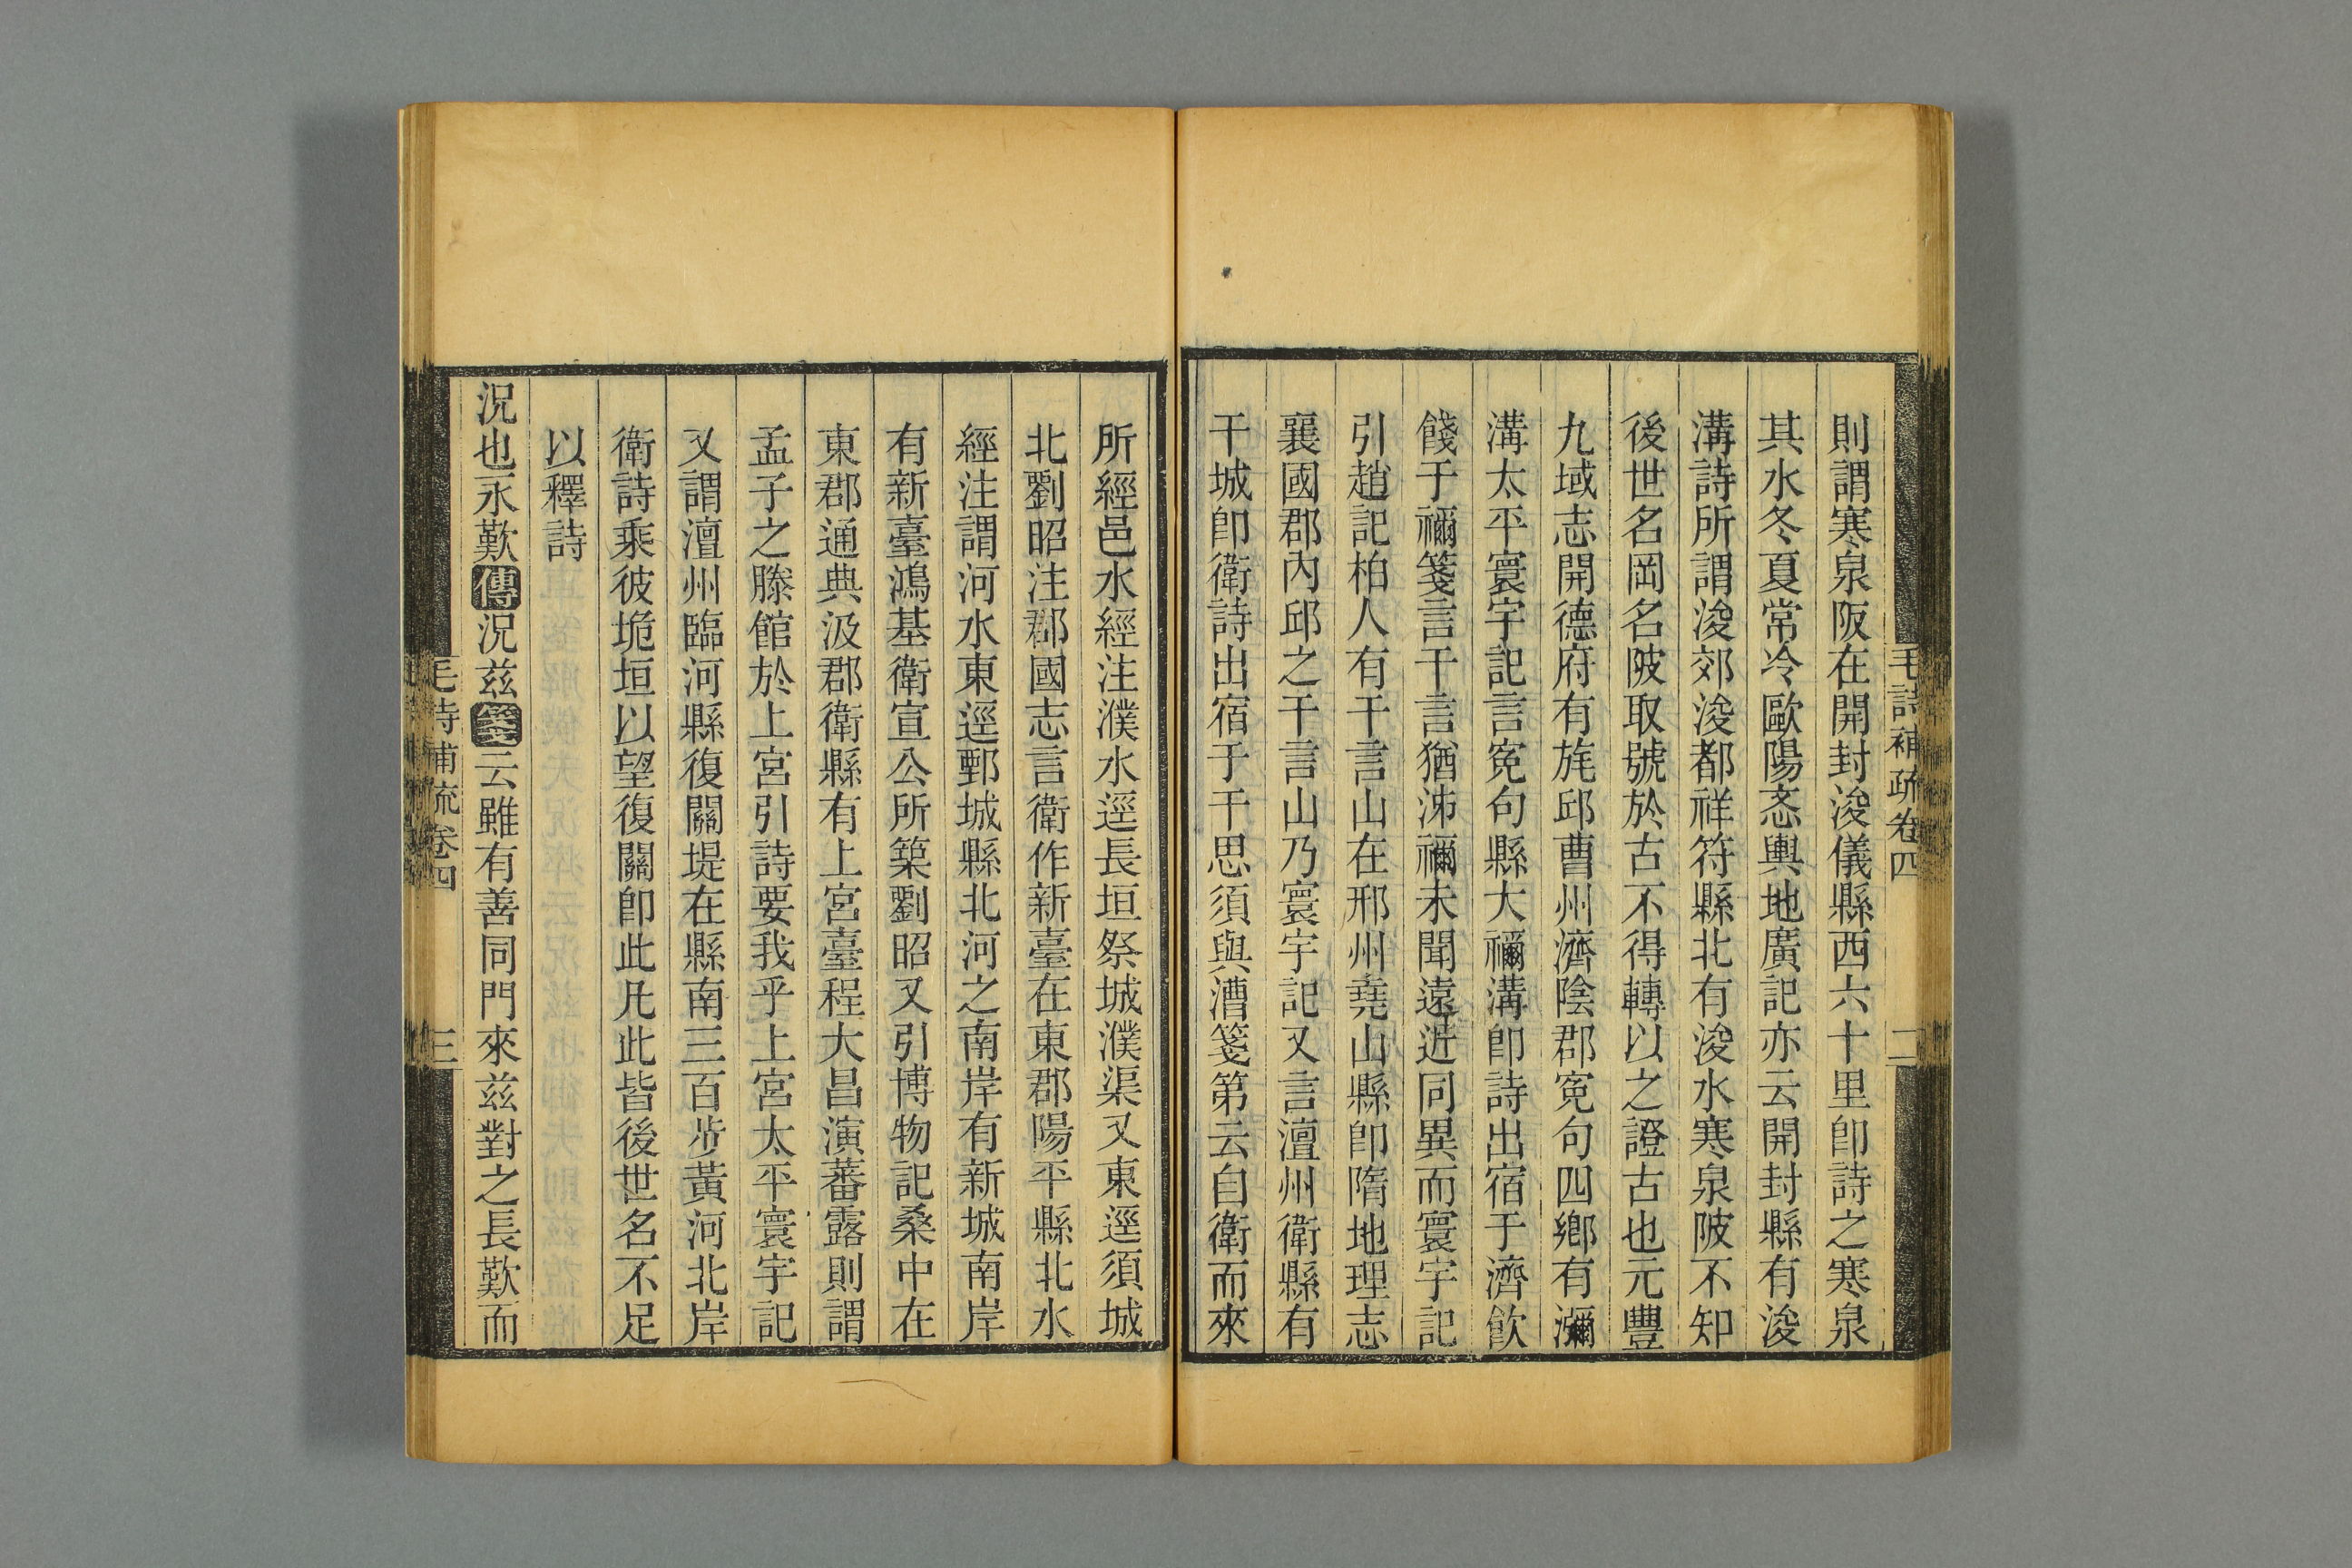 毛詩補疏卷四
二
則謂寒泉阪在開封浚儀縣西六十里卽詩之寒泉
其水冬夏常冷歐陽忞輿地廣記亦云開封縣有浚
溝詩所謂浚郊浚都祥符縣北有浚水寒泉陂不知
後世名岡名陂取號於古不得轉以之證古也元豐
九域志開德府有旄邱曹州濟陰郡寃句四鄉有濔
溝太平寰宇記言寃句縣大禰溝卽詩出宿于濟飮
餞于禰箋言干言猶泲禰未聞遠近同異而寰宇記
引趙記柏人有干言山在邢州堯山縣卽隋地理志
襄國郡內邱之干言山乃寰宇記又言澶州衛縣有
干城卽衛詩出宿于干思須與漕箋第云自衛而來
所經邑水經注濮水逕長垣祭城濮渠又東逕須城
北劉昭注郡國志言衛作新臺在東郡陽平縣北水
經注謂河水東逕鄄城縣北河之南岸有新城南岸
有新臺鴻基衛宣公所築劉昭又引博物記桑中在
東郡通典汲郡衛縣有上宮臺程大昌演蕃露則謂
孟子之滕館於上宮引詩要我乎上宮太平寰宇記
又謂澶州臨河縣復關堤在縣南三百步黃河北岸
衛詩乘彼垝垣以望復關卽此凡此皆後世名不足
以釋詩
況也永歎傳況玆箋云雖有善同門來玆對之長歎而
毛詩補疏卷四
三